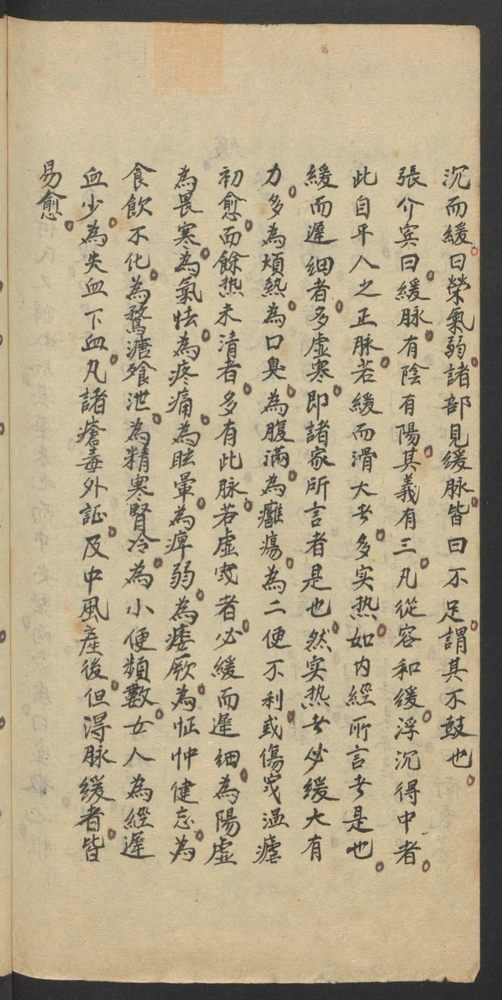 沉而緩曰榮氣弱諸部見緩脉皆曰不足謂其不鼓也
張介賓曰緩脉有陰有陽其義有三凡從容和緩浮沉得中者
此自平人之正脉若緩而滑大者多实热如内經所言者是也
緩而遲细者多虛寒即諸家所言者是也然实热者必缓大有
力多為煩熱為口臭為腹滿為癰瘍為二便不利或傷寒温瘧
初愈而餘热未清者多有此脉若虛寒者必緩而遲细為陽虛
為畏寒為氣怯為疼痛為眩暈為痺弱為痿厥為怔忡健忘為
食飲不化為鶩溏飱泄為精寒腎冷為小便頻數女人為經遲
血少為失血下血凡諸瘡毒外証及中風產後但得脉緩者皆
易愈